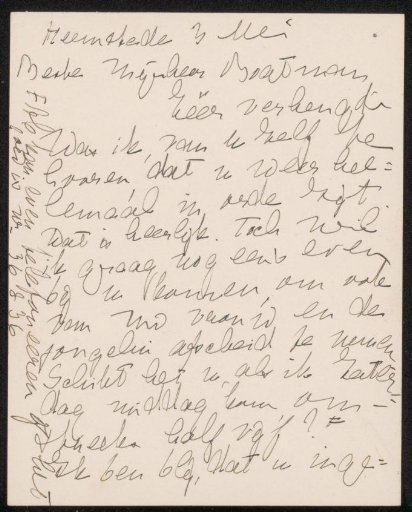 Heemstede 3 Mei
Beste Mijnheer Boatman,
Zéér verheugd
was ik, van u zelf te
hooren dat u weer hel=
lemaal in orde zijt.
Dat is heerlijk. Toch wil
ik graag nog eens even
bij u komen, om ook
van en de
jongelui afscheid te nemen
Schikt het u, als ik Zater=
dag middag kom, om=
streeks half vijf? =
Ik ben blij, dat u inge=
telefoneeren of
is no. 36836